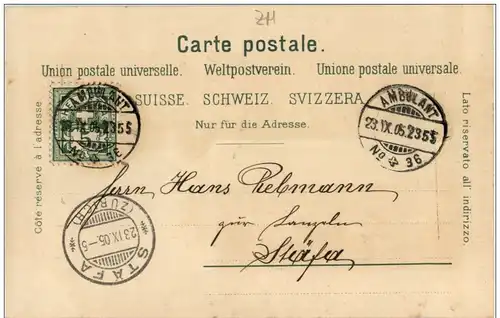 ZH
Carte postale.
Union postale universelle. Weltpostverein. Unione postale universale.
SUISSE. SCHWEIZ. SVIZZERA.
Nur für die Adresse.
Côté réservé à l'adresse
Lato riservato all' indirizzo.
AMBULANT
23.IX.05.235S
No 36
AMBULANT
23.IX.05.235S
No 36
Herrn Hans Rebmann
zur
Stäfa
STÄFA
23.IX.05.-5
(ZÜRICH)